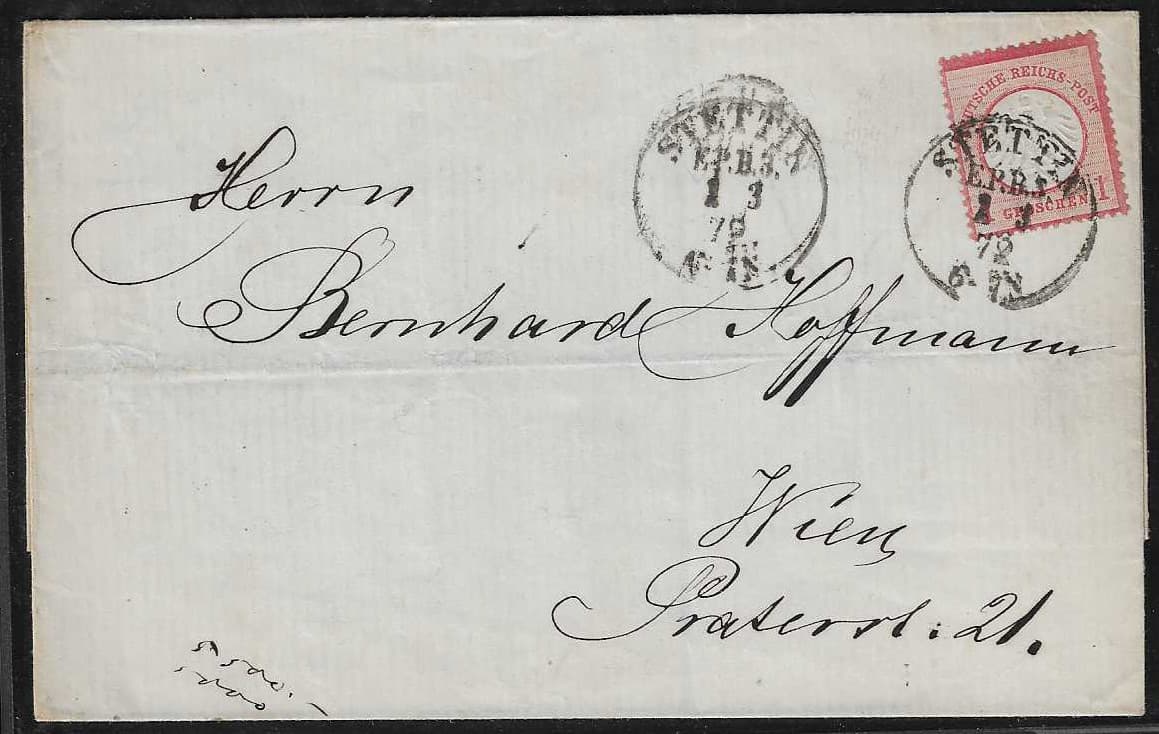 DEUTSCHE REICHS-POST
1 GROSCHEN 1
STETTIN
E.P.B.3.
1 3
72
STETTIN
E.P.B.
1 3
72
6-7N
Herrn
Bernhard Hoffmann
Wien
Praterst: 21.